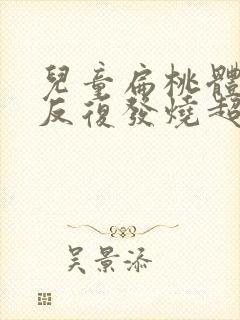 兒童扁桃體
反復發燒超
吳景添